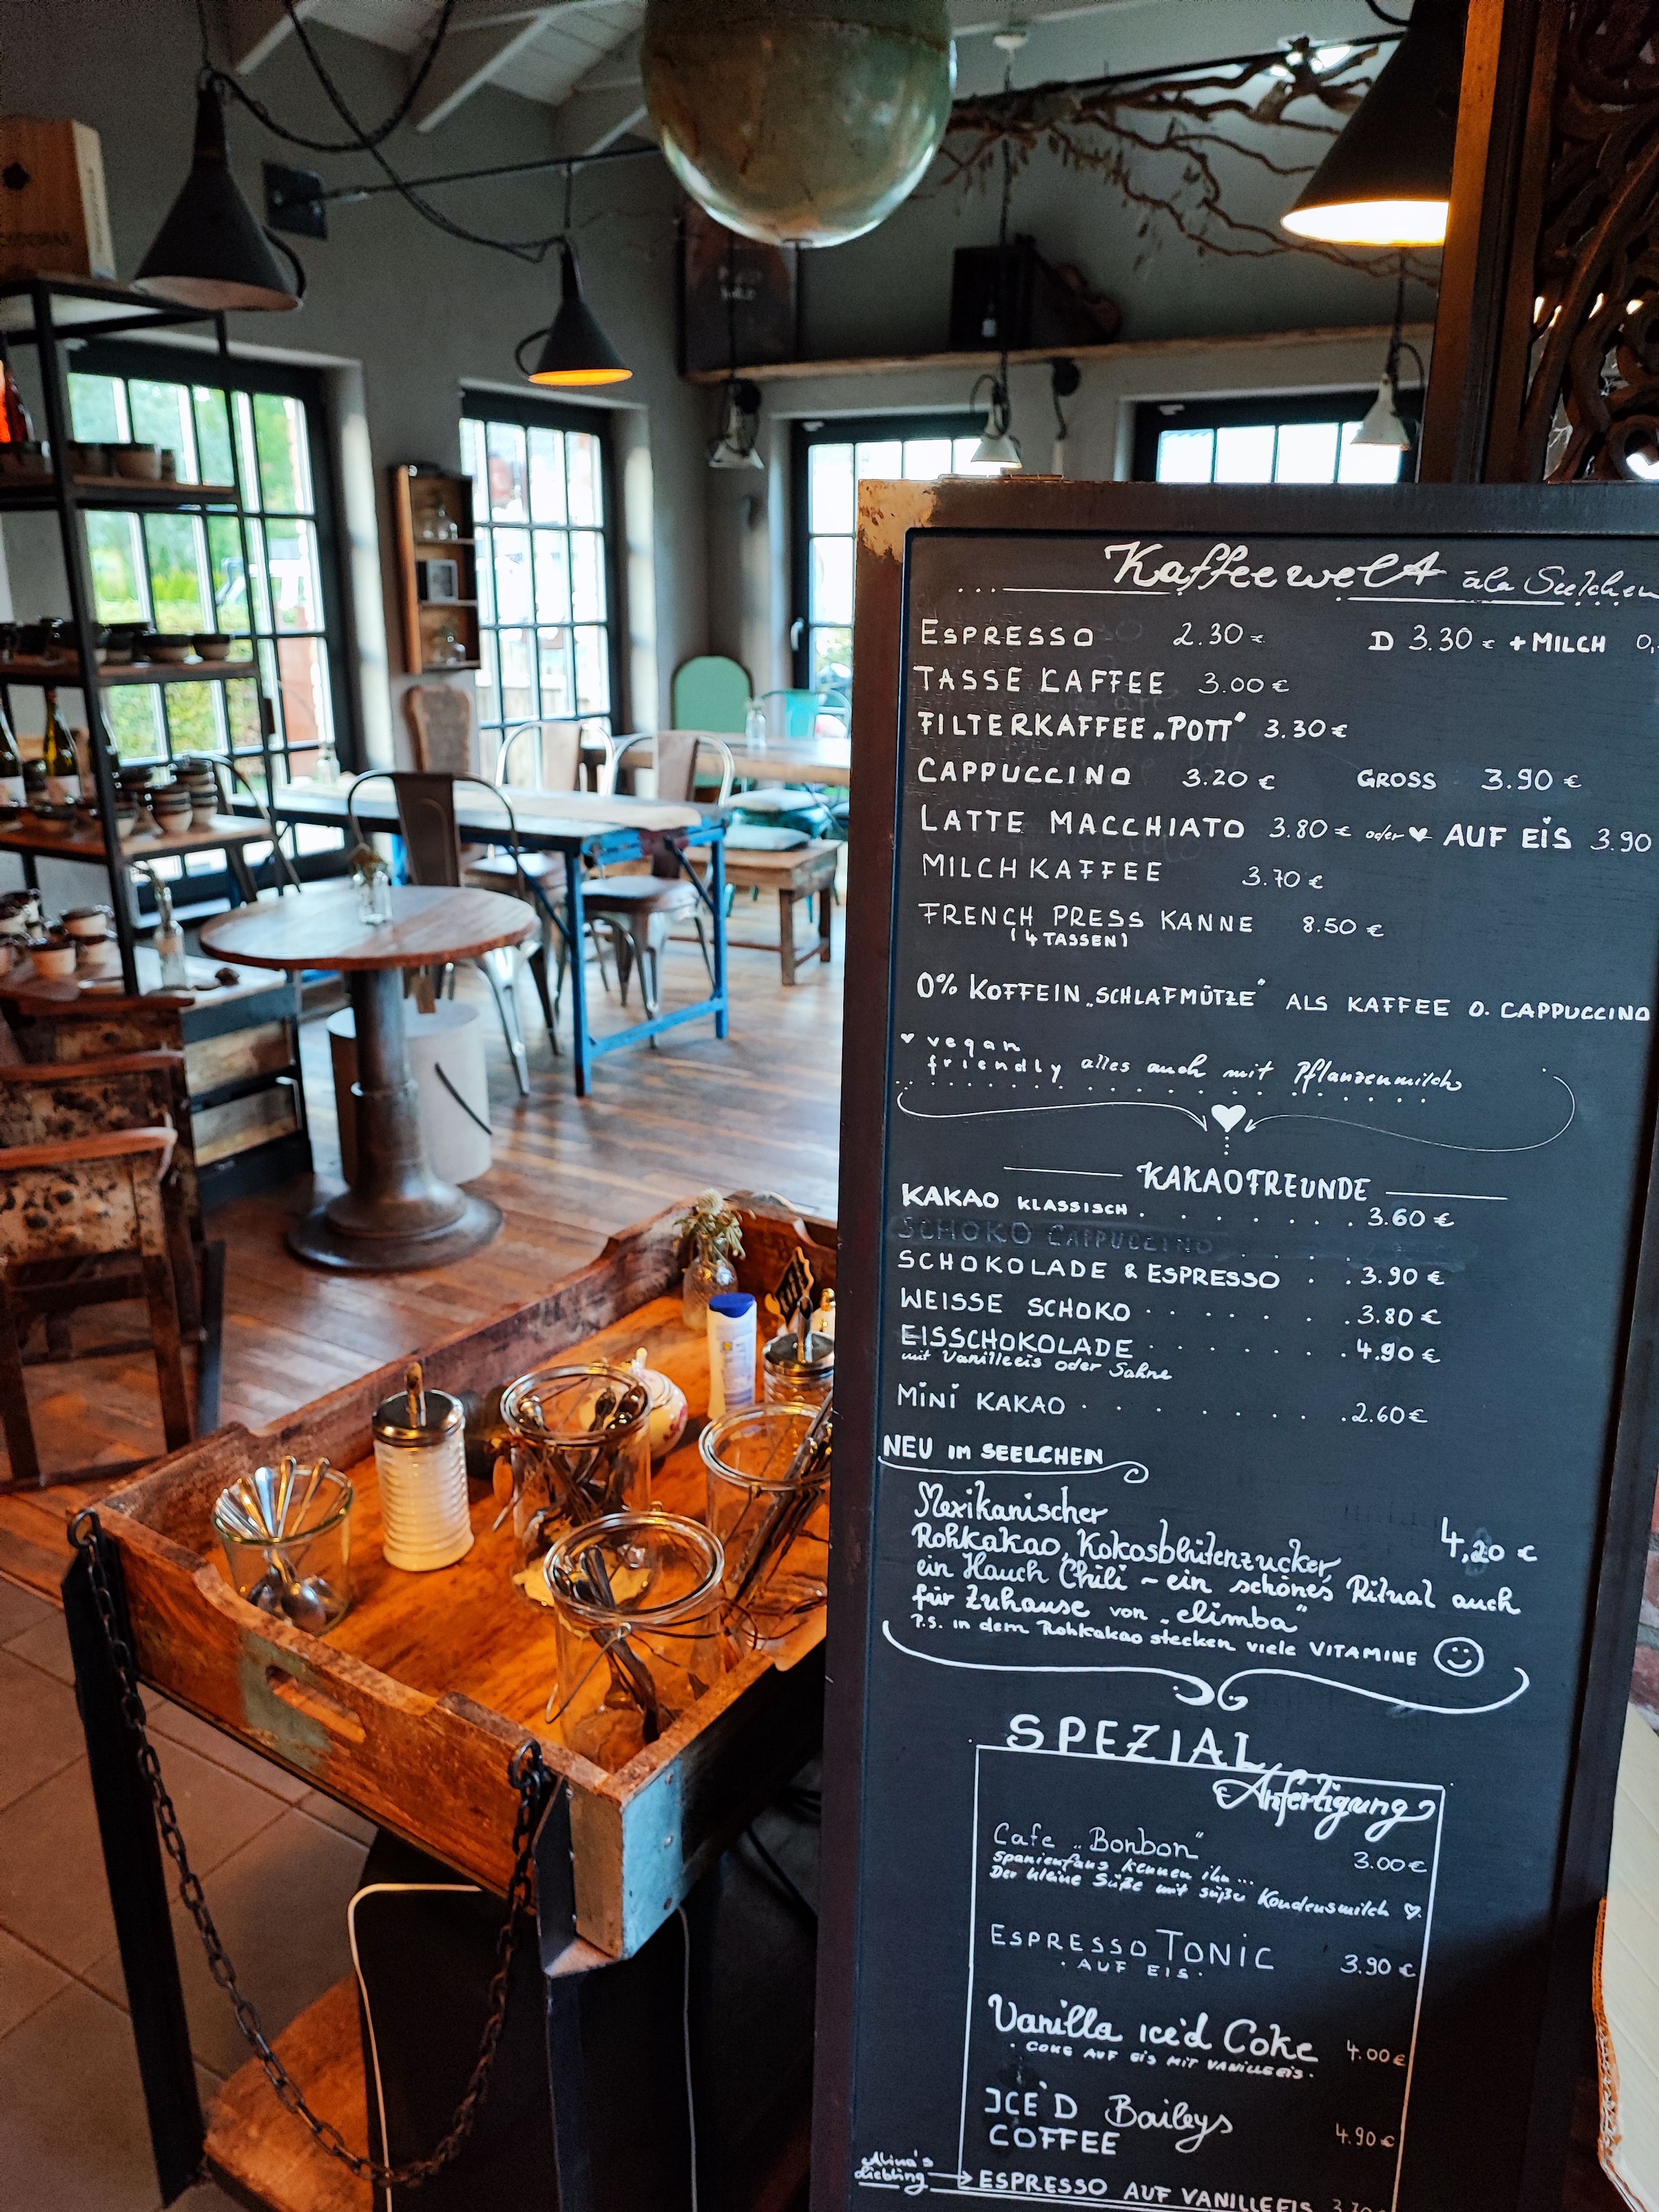 Kaffeewelt àla Seelchen
ESPRESSO 2.30 € D 3.30 € + MILCH 0,
TASSE KAFFEE 3.00 €
FILTERKAFFEE „POTT" 3.30 €
CAPPUCCINO 3.20 € GROSS 3.90 €
LATTE MACCHIATO 3.80 € oder ♥ AUF EIS 3.90
MILCHKAFFEE 3.70 €
FRENCH PRESS KANNE 8.50 €
(4 TASSEN)
0% KOFFEIN „SCHLAFMÜTZE" ALS KAFFEE O. CAPPUCCINO
♥ vegan
friendly alles auch mit Pflanzenmilch
KAKAOFREUNDE
KAKAO KLASSISCH . . . . . . . 3.60 €
SCHOKO CAPPUCCINO . . . .
SCHOKOLADE & ESPRESSO . . 3.90 €
WEISSE SCHOKO . . . . . . 3.80 €
EISSCHOKOLADE . . . . . . . 4.90 €
mit Vanilleeis oder Sahne
MINI KAKAO . . . . . . . 2.60 €
NEU im SEELCHEN
Mexikanischer
Rohkakao, Kokosblütenzucker, 4,20 €
ein Hauch Chili ~ ein schönes Ritual auch
für Zuhause von „elimba"
P.S. in dem Rohkakao stecken viele VITAMINE ☺
SPEZIAL
Anfertigung
Cafe „Bonbon" 3.00 €
Spanienfans kennen ihn...
Der kleine Süße mit süßer Kondensmilch ♡.
ESPRESSO TONIC 3.90 €
. AUF EIS .
Vanilla ice'd Coke 4.00 €
. COKE AUF EIS MIT VANILLEEIS .
ICE'D Baileys
COFFEE 4.90 €
Alina's
Liebling
ESPRESSO AUF VANILLEEIS